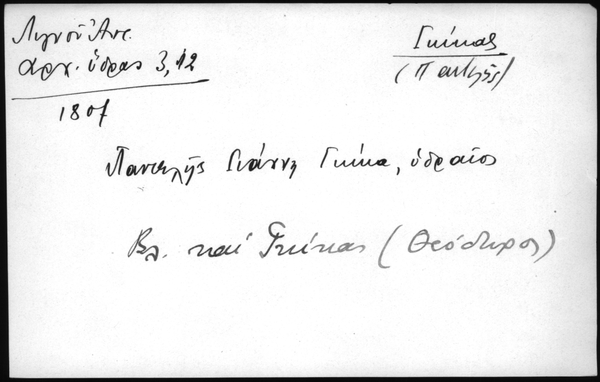 Λιγνοῦ Ἀντ.
Ἀρχ. Ὕδρας 3, 12
1807
Γκίκας
(Παντελῆς)
Παντελῆς Γιάννη Γκίκα, ὑδραῖος
Βλ. καὶ Γκίκας (Θεόδωρος)